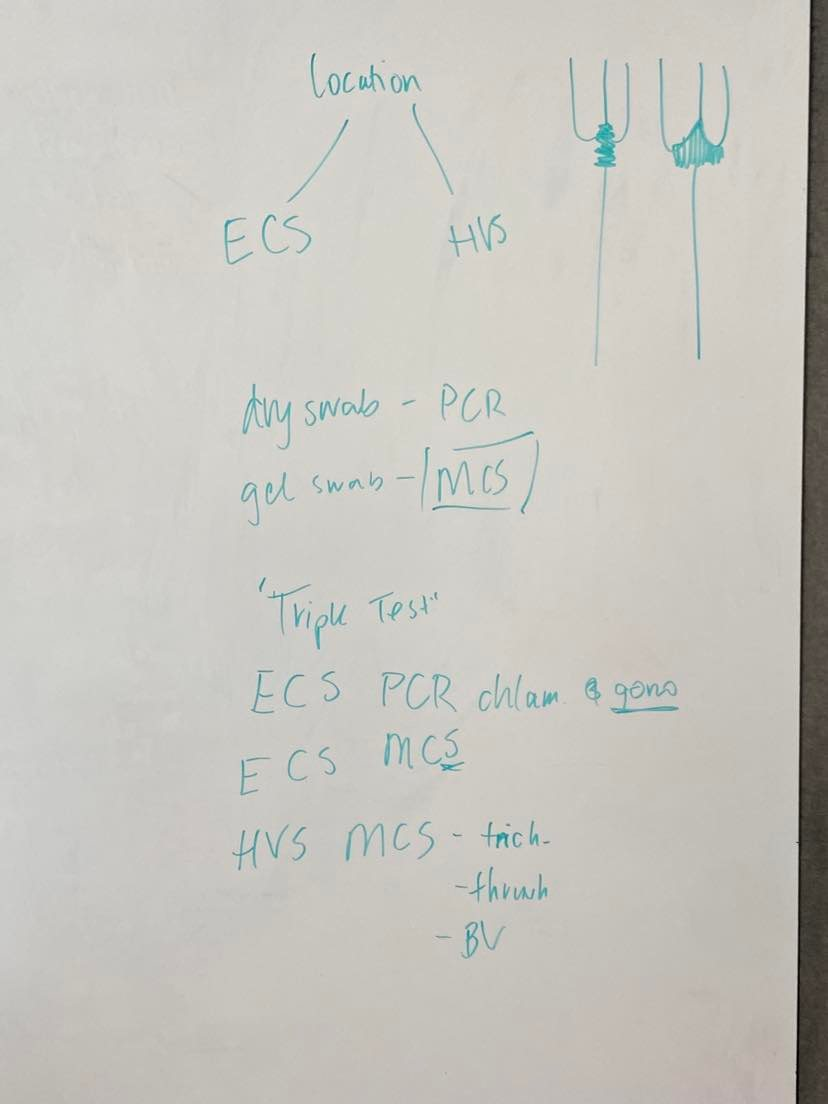 Location
ECS HVS
dry swab - PCR
gel swab - MCS
"Triple Test"
ECS PCR chlam. & gono
ECS MCS
HVS MCS - trich-
- thrush
- BV